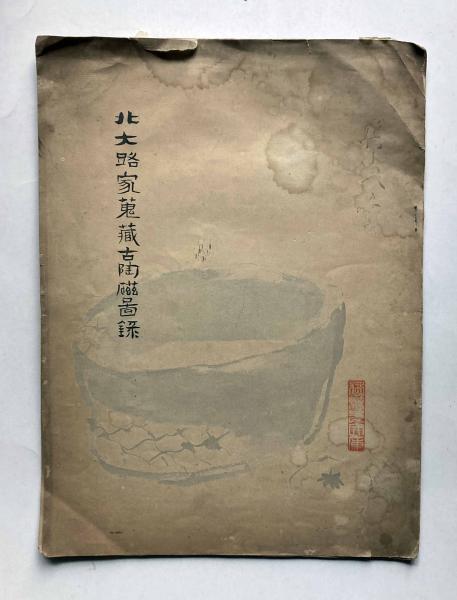 北大路家蒐藏古陶磁圖錄